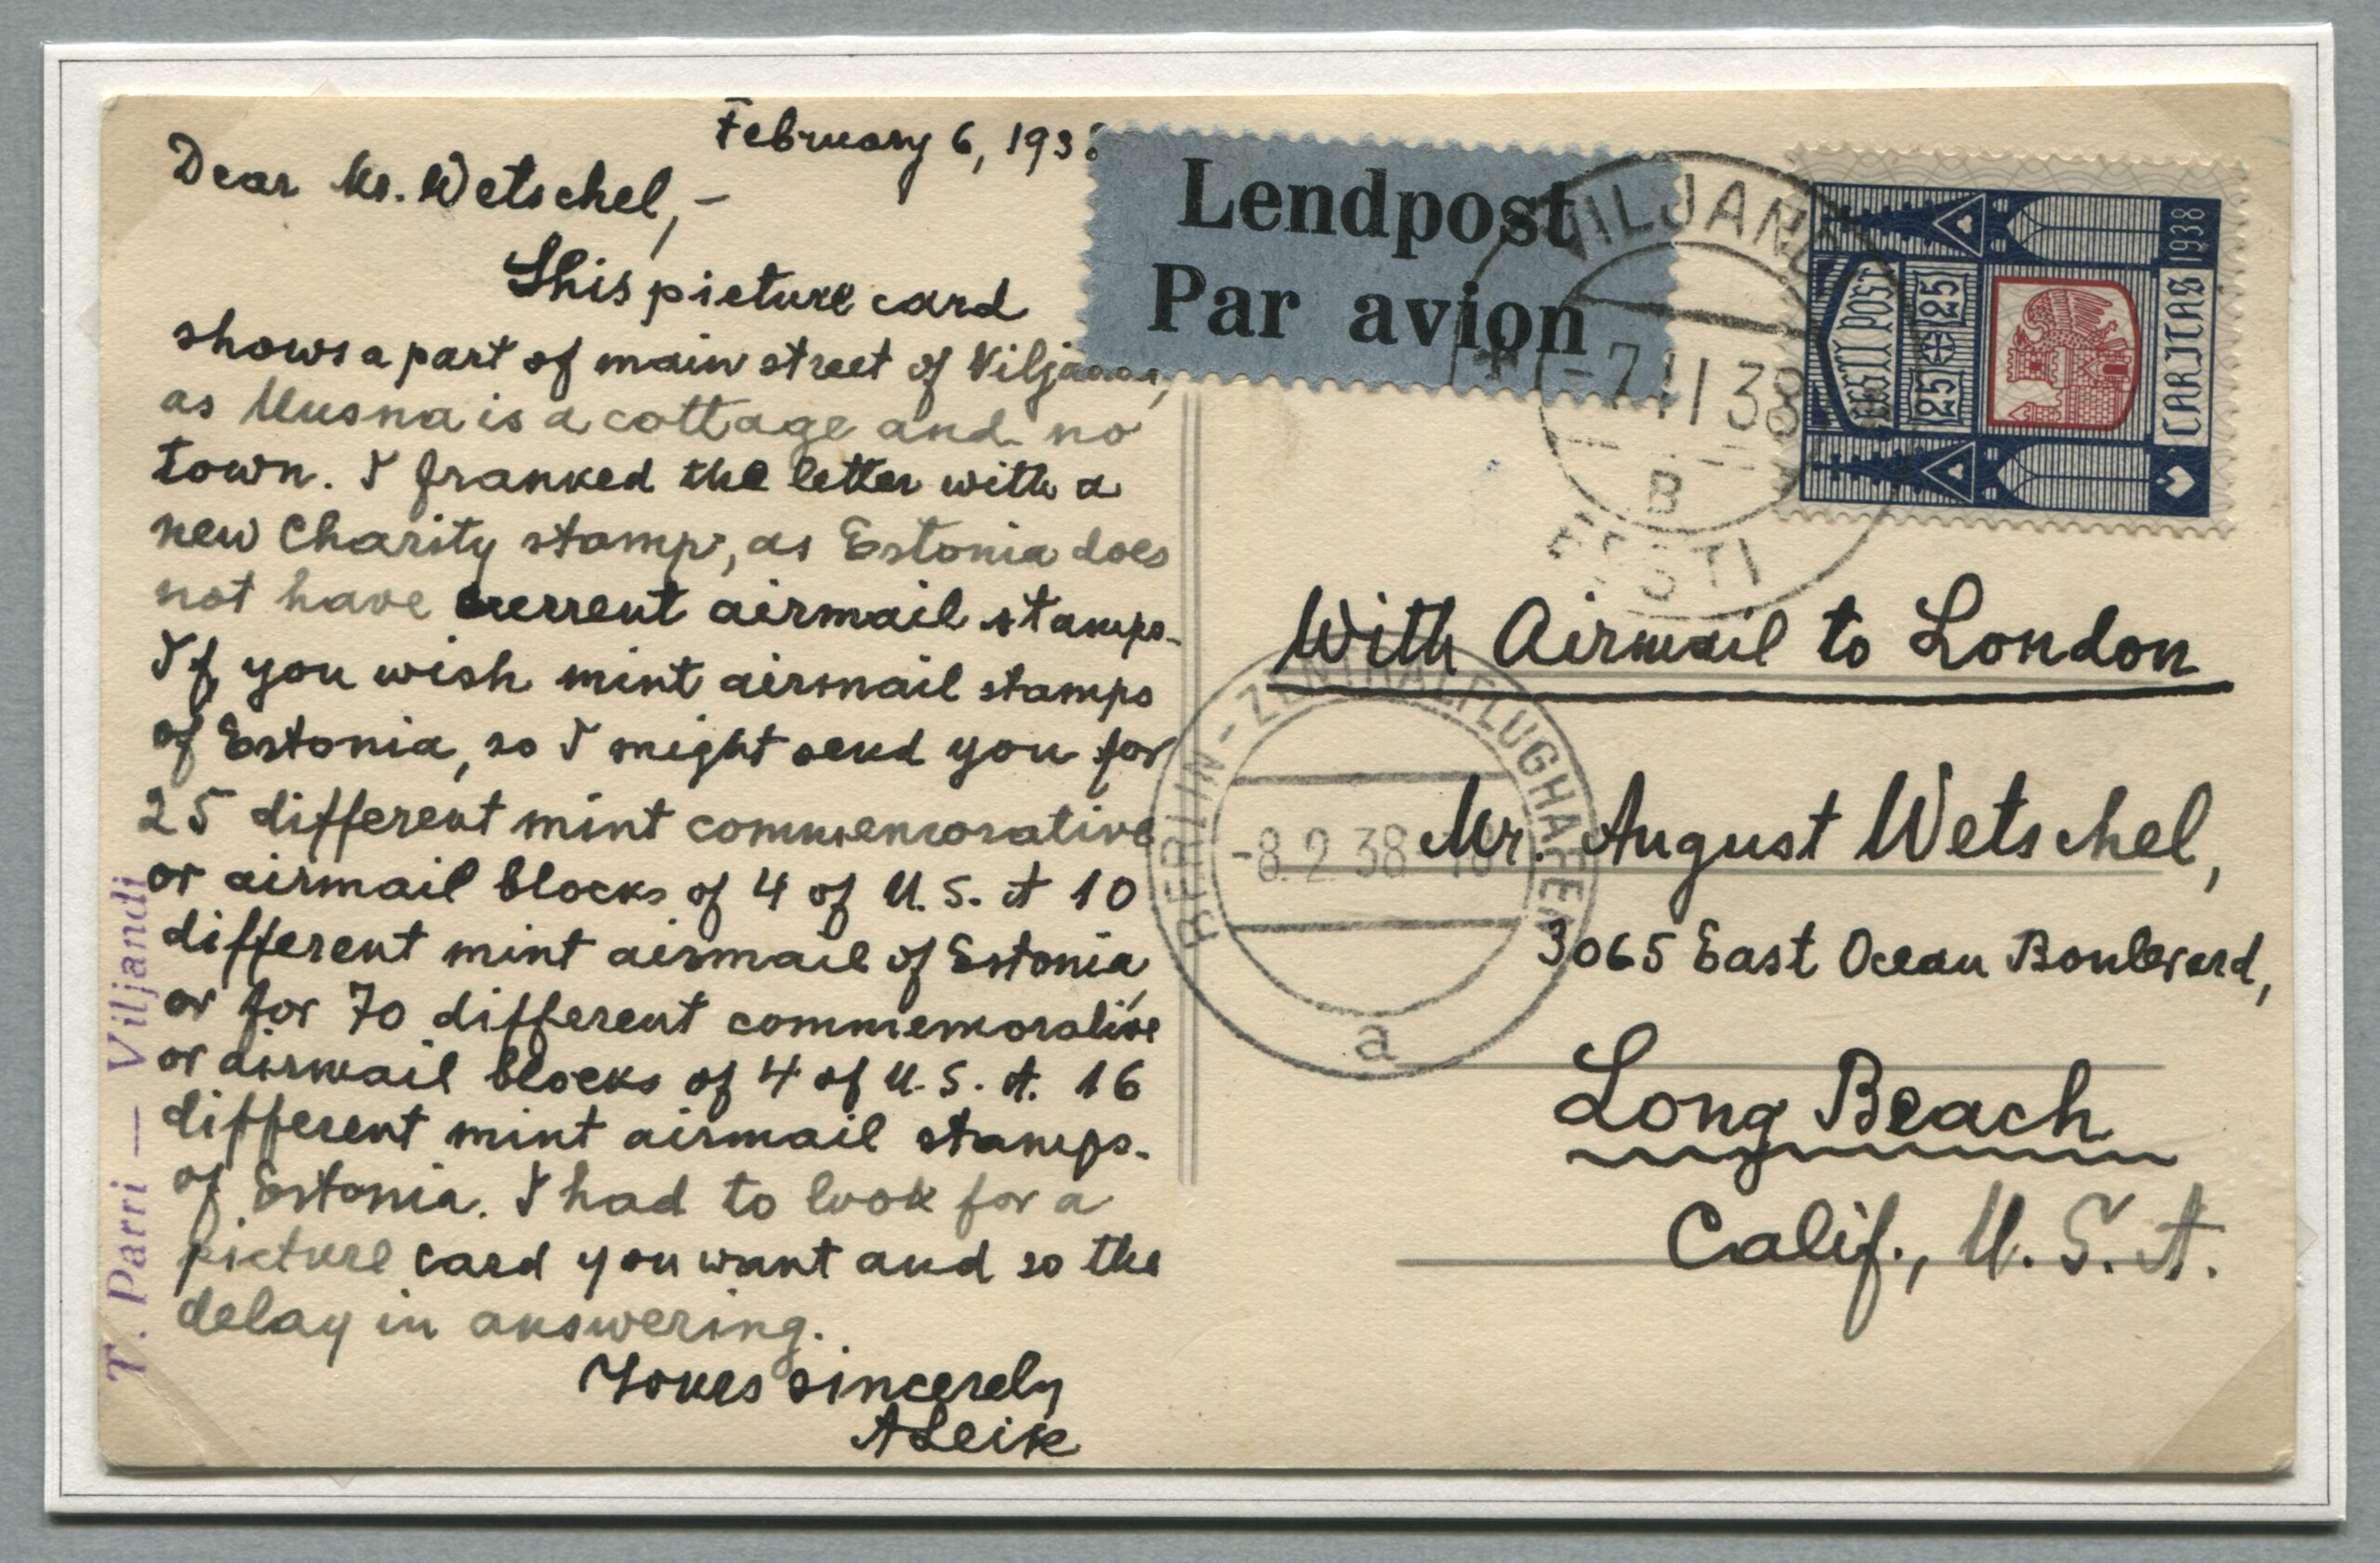 February 6, 1938
Dear Mr. Wetschel,-
This picture card
shows a part of main street of Viljandi,
as Uusna is a cottage and no
town. I franked the letter with a
new Charity stamp, as Estonia does
not have current airmail stamps.
If you wish mint airmail stamps
of Estonia, so I might send you for
25 different mint commemorative
or airmail blocks of 4 of U.S.A 10
different mint airmail of Estonia,
or for 70 different commemorative
or airmail blocks of 4 of U.S.A. 16
different mint airmail stamps.
of Estonia. I had to look for a
picture card you want and so the
delay in answering.
Yours sincerely
ALeik
T. Parri — Viljandi
Lendpost
Par avion
VILJANDI
-7.II 38
B
EESTI
EESTI POST
25 25
CARITAS 1938
With Airmail to London
BERLIN-ZENTRALFLUGHAFEN
-8.2.38
a
Mr. August Wetschel,
3065 East Ocean Boulevard,
Long Beach
Calif., U.S.A.